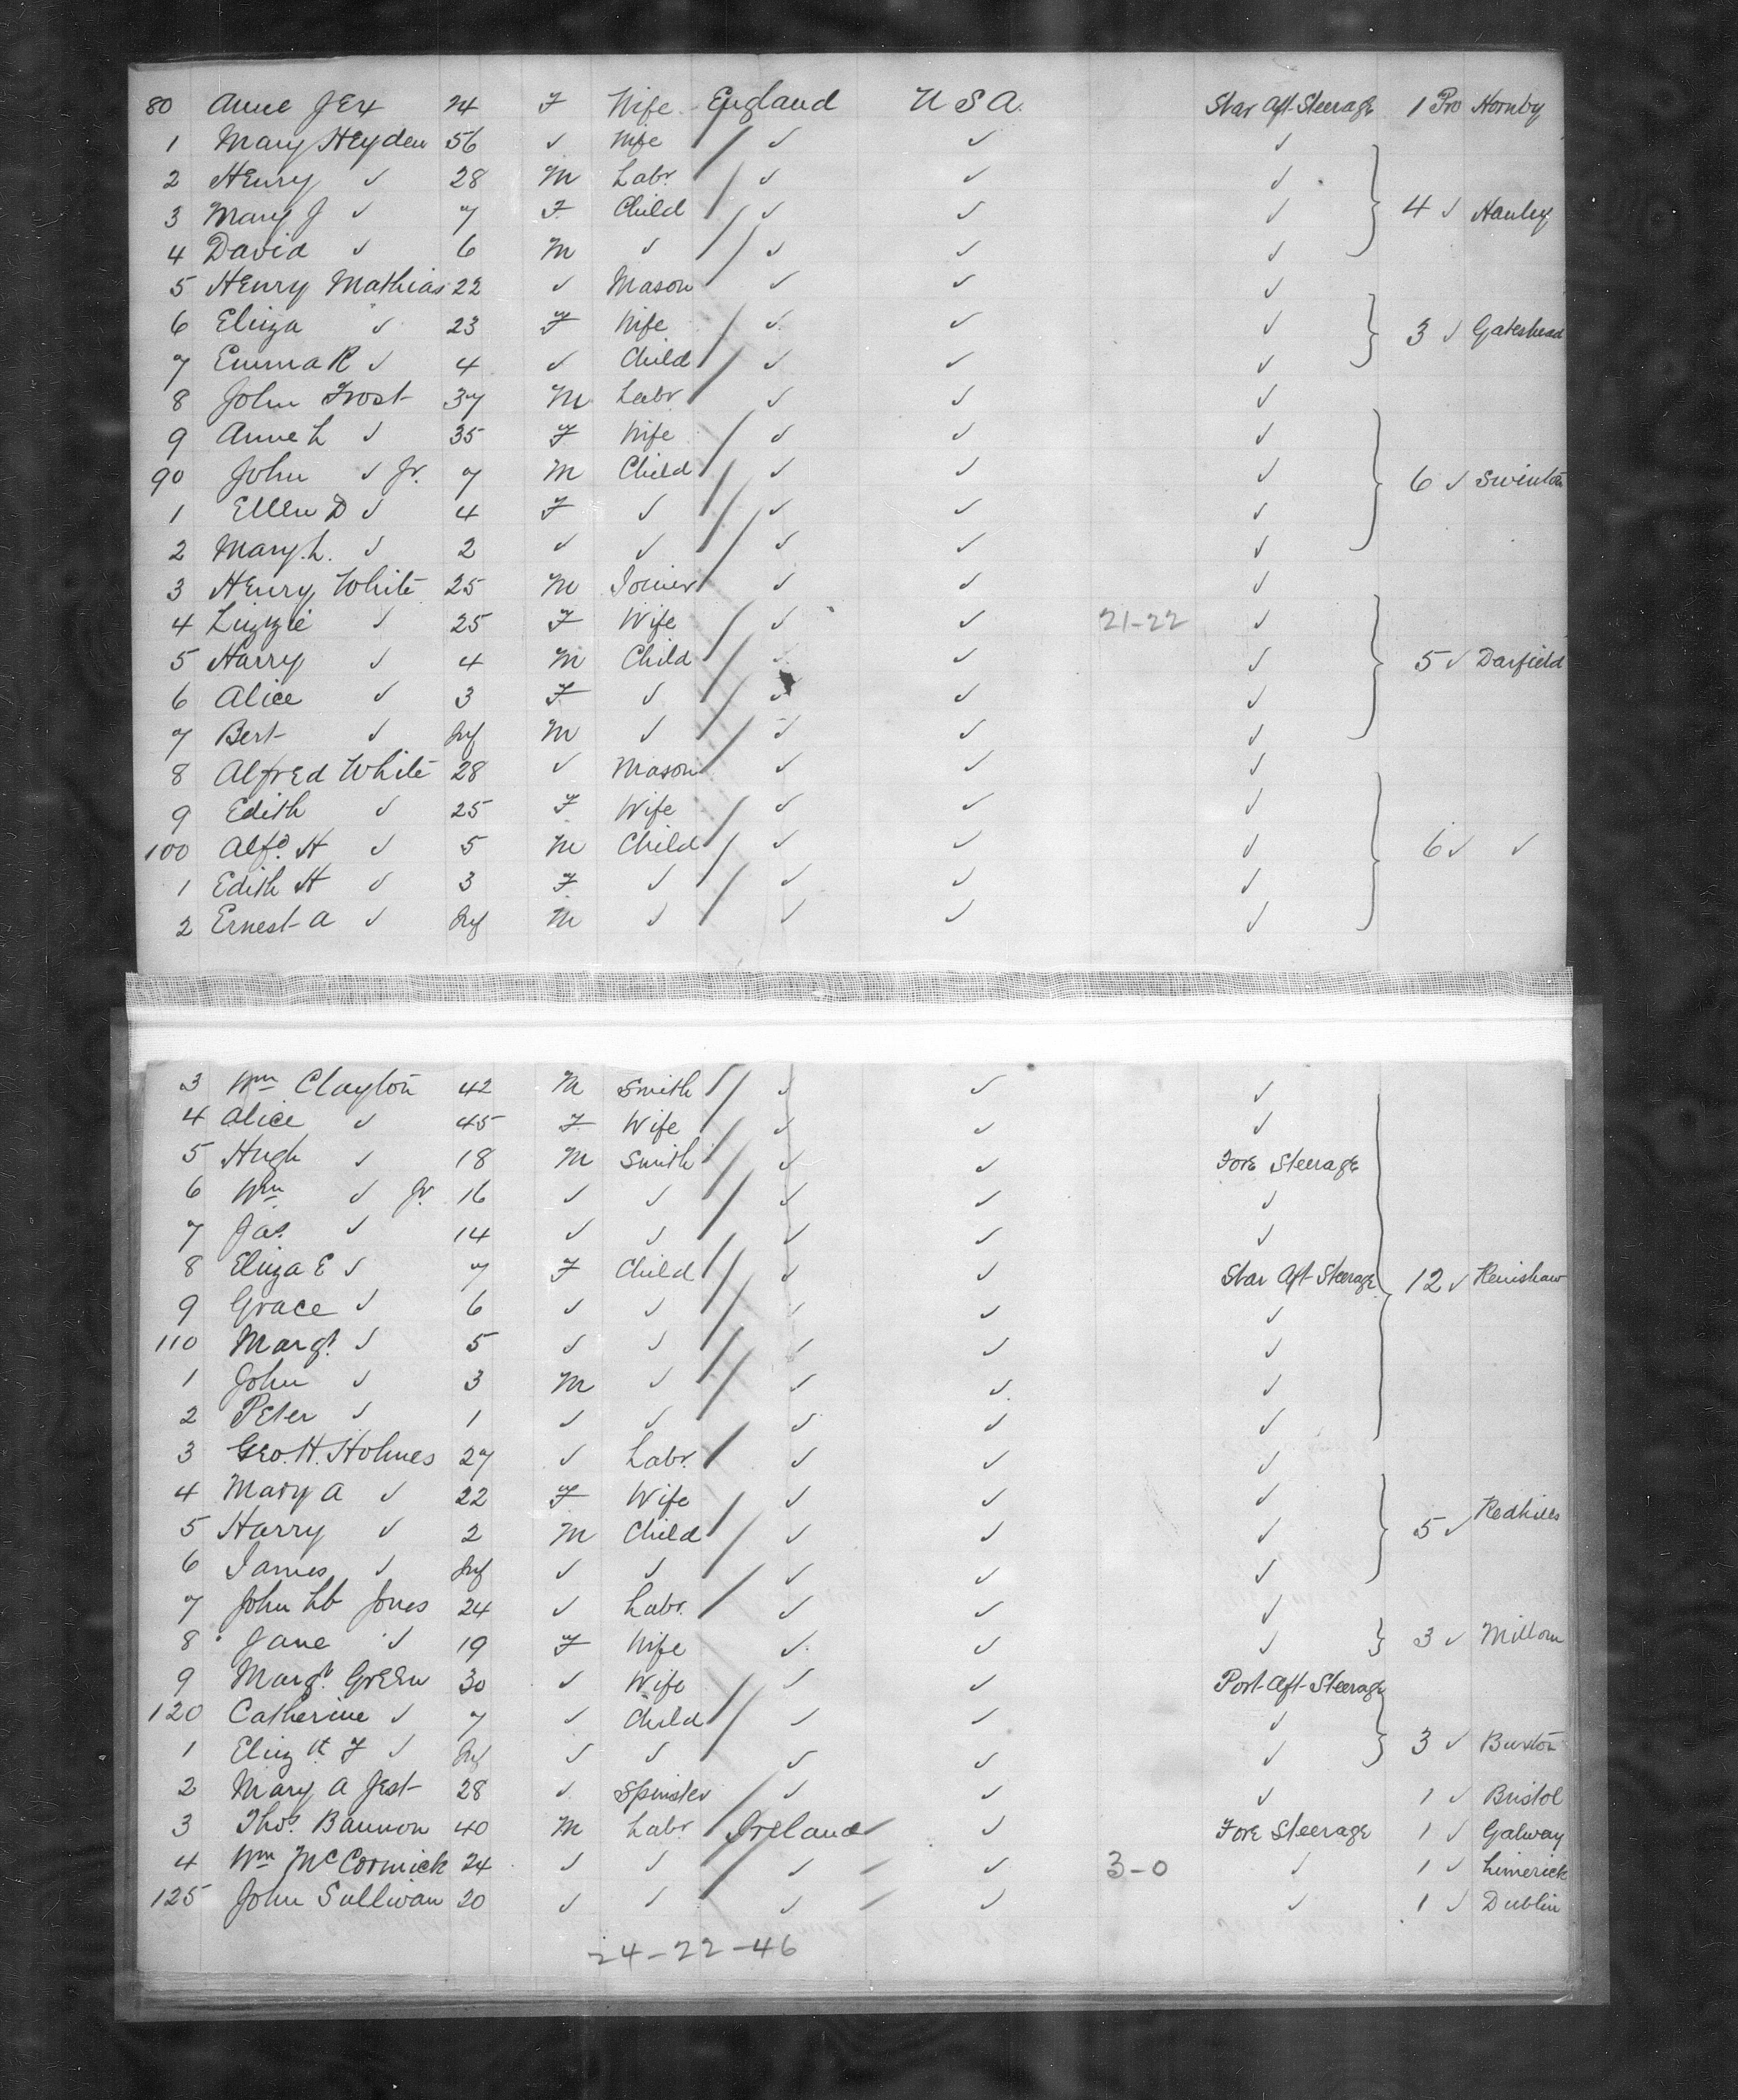 80 Anne Jex 24 F Wife England U S A. Star Aft Steerage 1 Pro Hornby
1 Mary Heyden 56 ✓ Wife ✓ ✓ ✓
2 Henry ✓ 28 M Labr. ✓ ✓ ✓
3 Mary J ✓ 7 F Child ✓ ✓ ✓ 4 ✓ Hanley
4 David ✓ 6 M ✓ ✓ ✓ ✓
5 Henry Mathias 22 ✓ Mason ✓ ✓ ✓
6 Eliza ✓ 23 F Wife ✓ ✓ ✓ 3 ✓ Gateshead
7 Emma R ✓ 4 ✓ Child ✓ ✓ ✓
8 John Frost 37 M Labr ✓ ✓ ✓
9 Anne L ✓ 35 F Wife ✓ ✓ ✓
90 John ✓ Jr. 7 M Child ✓ ✓ ✓ 6 ✓ Swinton
1 Ellen D ✓ 4 F ✓ ✓ ✓ ✓
2 Mary L. ✓ 2 ✓ ✓ ✓ ✓ ✓
3 Henry White 25 M Joiner ✓ ✓ ✓
4 Lizzie ✓ 25 F Wife ✓ ✓ 21-22 ✓
5 Harry ✓ 4 M Child ✓ ✓ ✓ 5 ✓ Darfield
6 Alice ✓ 3 F ✓ ✓ ✓ ✓
7 Bert ✓ Inf M ✓ ✓ ✓ ✓
8 Alfred White 28 ✓ Mason ✓ ✓ ✓
9 Edith ✓ 25 F Wife ✓ ✓ ✓
100 Alfd. H ✓ 5 M Child ✓ ✓ ✓ 6 ✓ ✓
1 Edith H ✓ 3 F ✓ ✓ ✓ ✓
2 Ernest A ✓ Inf M ✓ ✓ ✓ ✓
3 Wm Clayton 42 M Smith ✓ ✓ ✓
4 Alice ✓ 45 F Wife ✓ ✓ ✓
5 Hugh ✓ 18 M Smith ✓ ✓ Fore Steerage
6 Wm ✓ Jr. 16 ✓ ✓ ✓ ✓ ✓
7 Jas. ✓ 14 ✓ ✓ ✓ ✓ ✓
8 Eliza E ✓ 7 F Child ✓ ✓ Star Aft Steerage 12 ✓ Renishaw
9 Grace ✓ 6 ✓ ✓ ✓ ✓ ✓
110 Margt. ✓ 5 ✓ ✓ ✓ ✓ ✓
1 John ✓ 3 M ✓ ✓ ✓ ✓
2 Peter ✓ 1 ✓ ✓ ✓ ✓ ✓
3 Geo. H. Holmes 27 ✓ Labr. ✓ ✓ ✓
4 Mary A ✓ 22 F Wife ✓ ✓ ✓
5 Harry ✓ 2 M Child ✓ ✓ ✓ 5 ✓ Redhills
6 James ✓ Inf ✓ ✓ ✓ ✓ ✓
7 John Jones 24 ✓ Labr. ✓ ✓ ✓
8 Jane ✓ 19 F Wife ✓ ✓ ✓ 3 ✓ Millom
9 Margt. Green 30 ✓ Wife ✓ ✓ Port Aft Steerage
120 Catherine ✓ 7 ✓ Child ✓ ✓ ✓
1 Elizth F ✓ Inf ✓ ✓ ✓ ✓ ✓ 3 ✓ Buxton
2 Mary A Jest 28 ✓ Spinster ✓ ✓ ✓ 1 ✓ Bristol
3 Thos. Bannon 40 M Labr Ireland ✓ Fore Steerage 1 ✓ Galway
4 Wm McCormick 24 ✓ ✓ ✓ ✓ 3-0 ✓ 1 ✓ Limerick
125 John Sullivan 20 ✓ ✓ ✓ ✓ ✓ 1 ✓ Dublin
24-22-46